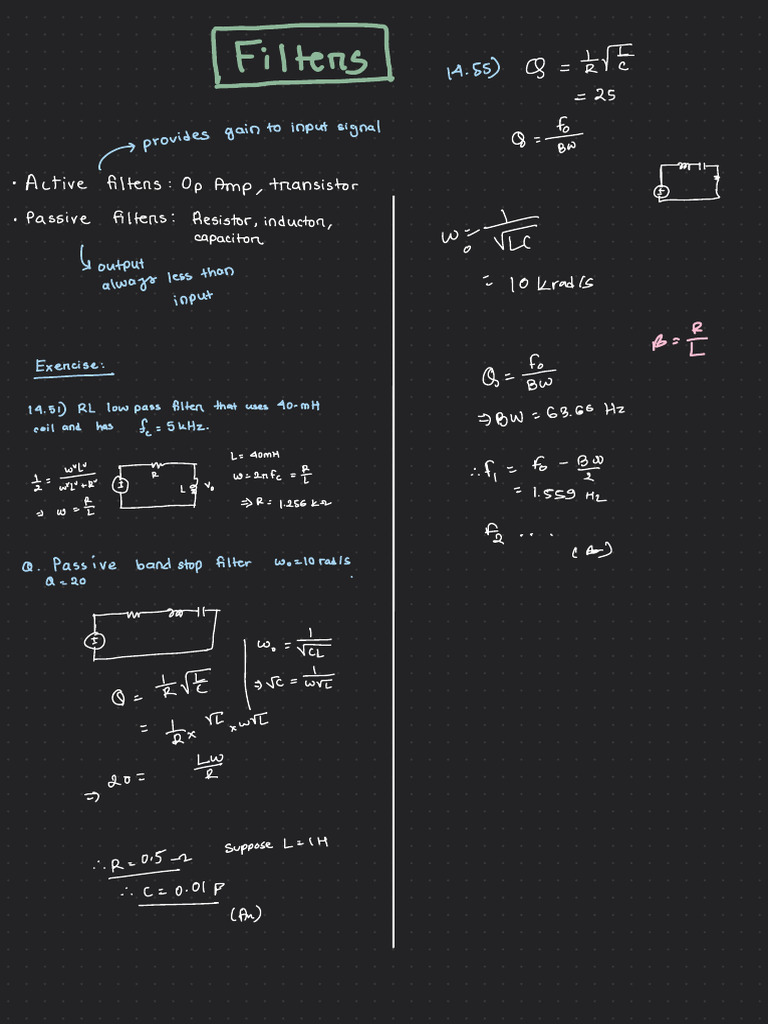 Filters
provides gain to input signal
• Active filters: Op Amp, transistor
• Passive filters: Resistor, inductor,
capacitor
output
always less than
input
Exercise:
14.51) RL low pass filter that uses 40-mH
coil and has f_c = 5 kHz.
1/2 = ω²L²/(ω²L²+R²)
⇒ ω = R/L
R
L
V₀
L = 40mH
ω = 2πf_c = R/L
⇒ R = 1.256 kΩ
Q. Passive band stop filter ω₀ = 10 rad/s
Q = 20
Q = 1/R √(L/C)
= 1/R × √L × ω√L
⇒ 20 = Lω/R
ω₀ = 1/√(CL)
⇒ √C = 1/(ω√L)
Suppose L = 1H
∴ R = 0.5 Ω
∴ C = 0.01 F
(An)
14.55) Q = 1/R √(L/C)
= 25
Q = f₀/BW
ω₀ = 1/√(LC)
= 10 krad/s
B = R/L
Q = f₀/BW
⇒ BW = 63.66 Hz
∴ f₁ = f₀ - BW/2
= 1.559 Hz
f₂ ....